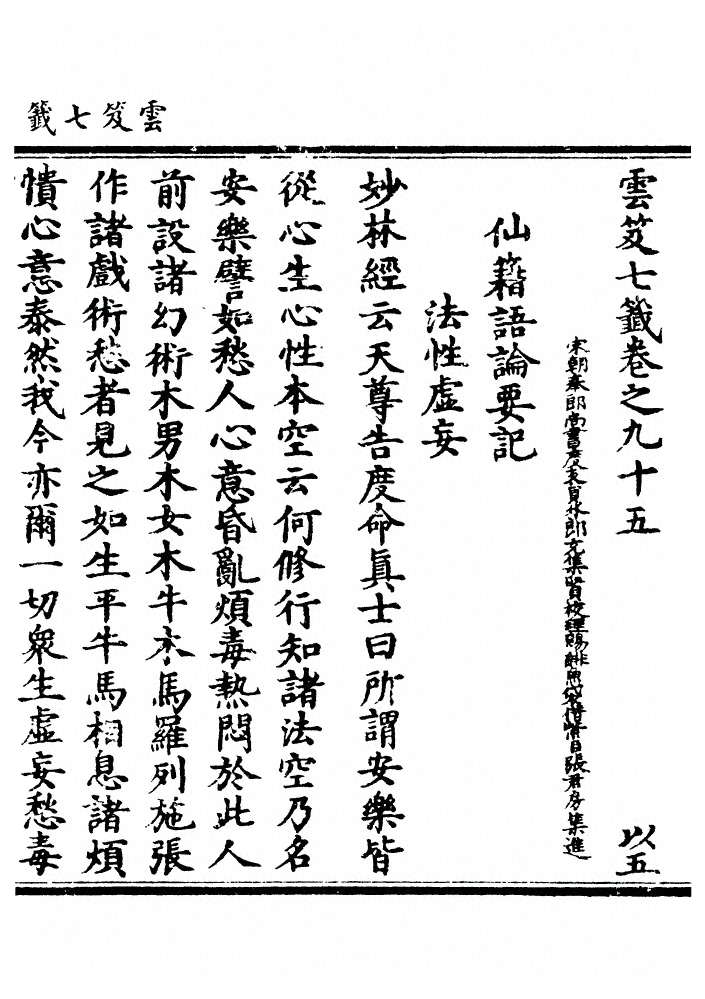 雲笈七籤
雲笈七籤卷之九十五 以五
宋朝奉郎尚書度支員外郎充集賢校理賜緋魚袋借臣張君房集進
仙籍語論要記
法性虛妄
妙林經云天尊告度命眞士曰所謂安樂皆
從心生心性本空云何修行知諸法空乃名
安樂譬如愁人心意昏亂煩毒熱悶於此人
前設諸幻術木男木女木牛木馬羅列施張
作諸戲術愁者見之如生平牛馬相息諸煩
憒心意泰然我今亦爾一切衆生虛妄愁毒